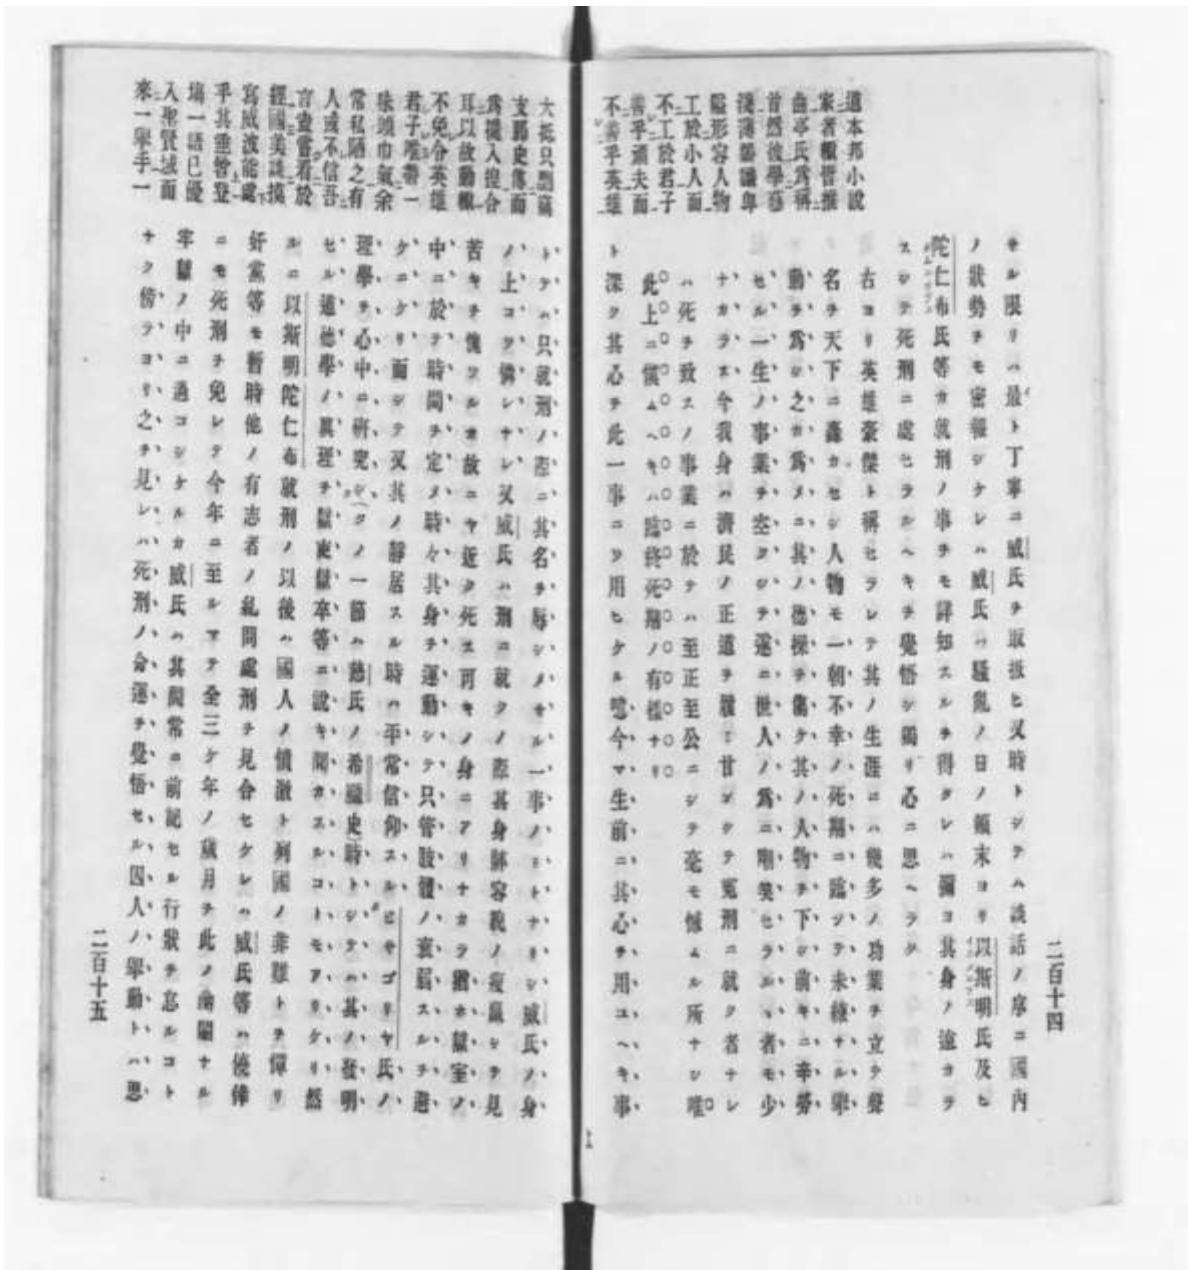 二百十四
道本邦小説
家者輙皆推
曲亭氏爲稱
首然彼學藝
淺薄器識卑
隘形容人物
工於小人而
不工於君子
善乎頑夫而
不善乎英雄
サル限リハ最ト丁寧ニ威氏ヲ取扱ヒ又時トシテハ談話ノ序ニ國内
ノ狀勢ヲモ密報シケレハ威氏ハ騷亂ノ日ノ顛末ヨリ以斯明氏及ヒ
陀仁布氏等カ就刑ノ事ヲモ詳知スルヲ得タレハ彌ヨ其身ノ遠カラ
スシテ死刑ニ處セラルヘキヲ覺悟シ獨リ心ニ思ヘラク
古ヨリ英雄豪傑ト稱セラレテ其ノ生涯ニハ幾多ノ功業ヲ立テ聲
名ヲ天下ニ轟カセシ人物モ一朝不幸ノ死期ニ臨ンテ未練ナル舉
動ヲ爲シ之カ爲メニ其ノ德操ヲ傷ケ其ノ人物ヲ下シ前キニ辛勞
セル一生ノ事業ヲ空クシテ遂ニ世人ノ爲ニ嘲笑セラルヽ者モ少
ナカラス今我身ハ濟民ノ正道ヲ履ミ甘ンシテ冤刑ニ就ク者ナレ
ハ死ヲ致スノ事業ニ於テハ至正至公ニシテ毫モ憾ムル所ナシ唯
此上ニ愼ムヘキハ臨終死期ノ有樣ナリ
ト深ク其心ヲ此一事ニソ用ヒケル噫今マ生前ニ其心ヲ用ユヘキ事
大抵只剽竊
支那史傳而
爲擬入捏合
耳以故動輙
不免令英雄
君子唯帶一
味頭巾氣余
常私陋之有
人或不信吾
言盍嘗看於
經國美談摸
寫威波能處
乎其重智登
塲一語已優
入聖賢域而
來一擧手一
トテハ只就刑ノ際ニ其名ヲ辱シメサル一事ノミトナリシ威氏ノ身
ノ上コソ憐レナレ又威氏ハ刑ニ就クノ際其身躰容貌ノ瘦羸シテ見
苦キヲ愧ツルカ故ニヤ近ク死ス可キノ身ニアリナカラ猶ホ獄室ノ
中ニ於テ時間ヲ定メ時々其身ヲ運動シテ只管肢體ノ衰弱スルヲ避
ケニケリ而シテ又其ノ靜居スル時ハ平常信仰スルピサゴリヤ氏ノ
理學ヲ心中ニ研究シ(ノ一節ハ慈氏ノ希臘史)時トシテハ其ノ發明
セル道德學ノ眞理ヲ獄吏獄卒等ニ說キ聞カスルコトモアリケリ然
ルニ以斯明陀仁布就刑ノ以後ハ國人ノ憤激ト列國ノ非難トヲ憚リ
奸黨等モ暫時他ノ有志者ノ糺問處刑ヲ見合セケレハ威氏等ハ僥倖
ニモ死刑ヲ免レテ今年ニ至ルマテ全三ケ年ノ歲月ヲ此ノ ナル
牢獄ノ中ニ過コシケルカ威氏ハ其間常ニ前記セル行狀ヲ怠ルコト
ナク傍ヨリ之ヲ見レハ死刑ノ命運ヲ覺悟セル囚人ノ舉動トハ思
二百十五